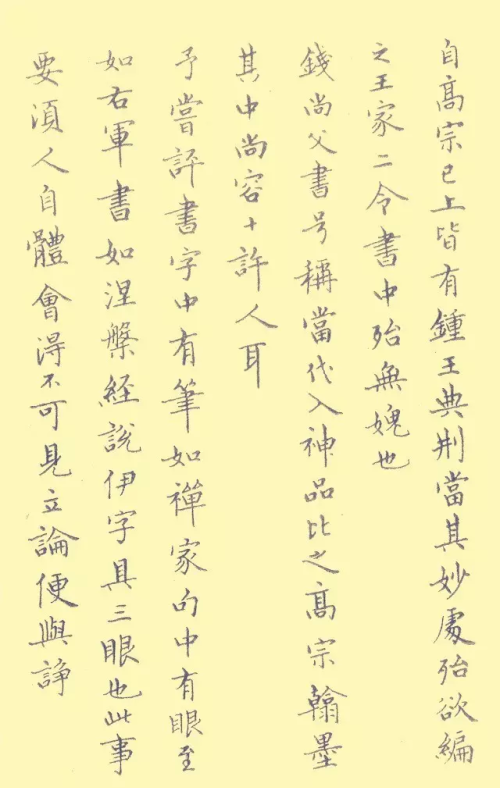 自高宗已上皆有鍾王典刑當其妙處殆欲編
之王家二令書中殆無媿也
錢尚父書号稱當代入神品比之高宗翰墨
其中尚容十許人耳
予嘗評書字中有筆如禪家句中有眼至
如右軍書如涅槃経說伊字具三眼也此事
要須人自體會得不可見立論便與諍